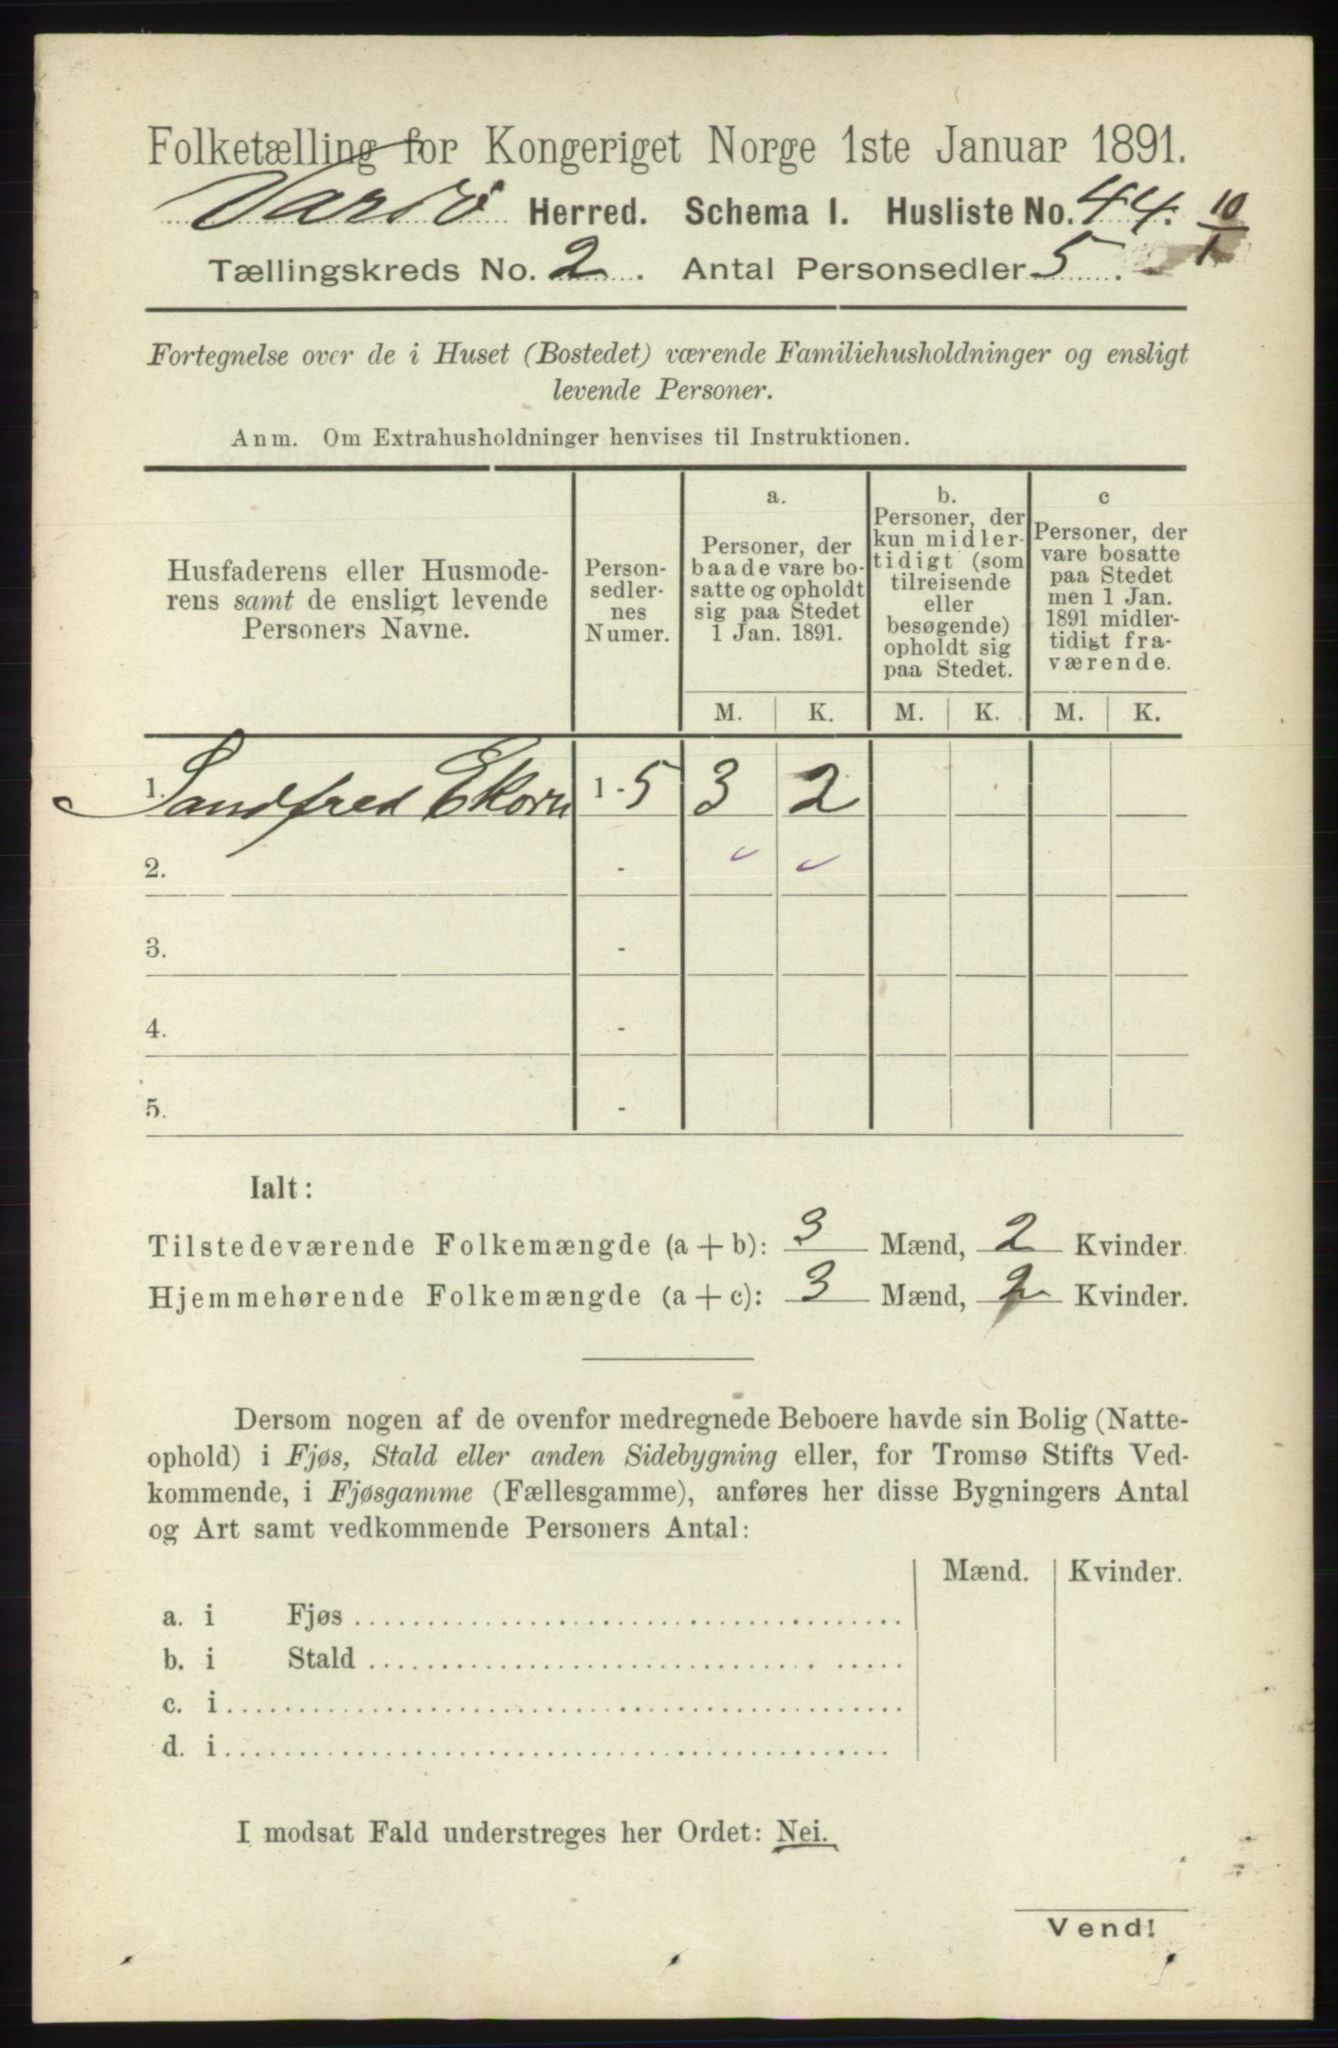 Folketælling for Kongeriget Norge 1ste Januar 1891.
Vardø Herred. Schema I. Husliste No. 44. 10/1
Tællingskreds No. 2. Antal Personsedler 5.
Fortegnelse over de i Huset (Bostedet) værende Familiehusholdninger og ensligt
levende Personer.
Anm. Om Extrahusholdninger henvises til Instruktionen.
Husfaderens eller Husmode-
rens samt de ensligt levende
Personers Navne.
Person-
sedler-
nes
Numer.
a.
Personer, der
baade vare bo-
satte og opholdt
sig paa Stedet
1 Jan. 1891.
b.
Personer, der
kun midler-
tidigt (som
tilreisende
eller
besøgende)
opholdt sig
paa Stedet.
c
Personer, der
vare bosatte
paa Stedet
men 1 Jan.
1891 midler-
tidigt fra-
værende.
M. K. M. K. M. K.
1. Sandfred Ekorn 1 - 5 3 2
2. -
3. -
4. -
5. -
Ialt:
Tilstedeværende Folkemængde (a + b): 3 Mænd, 2 Kvinder.
Hjemmehørende Folkemængde (a + c): 3 Mænd, 2 Kvinder.
Dersom nogen af de ovenfor medregnede Beboere havde sin Bolig (Natte-
ophold) i Fjøs, Stald eller anden Sidebygning eller, for Tromsø Stifts Ved-
kommende, i Fjøsgamme (Fællesgamme), anføres her disse Bygningers Antal
og Art samt vedkommende Personers Antal:
Mænd. Kvinder.
a. i Fjøs
b. i Stald
c. i
d. i
I modsat Fald understreges her Ordet: Nei.
Vend!